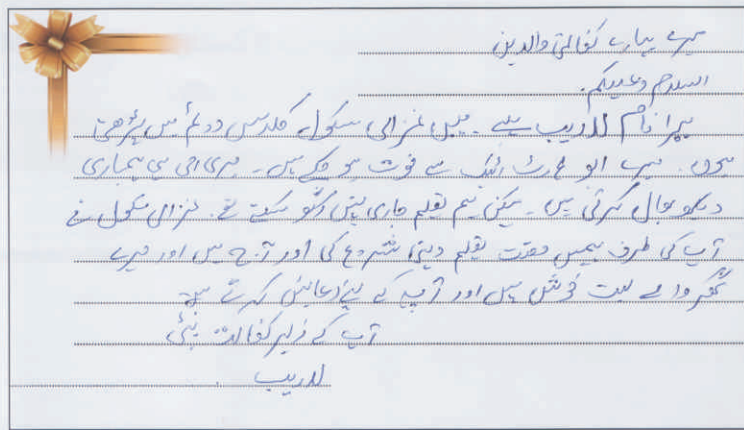 میرے پیارے کفالتی والدین
اسلام وعلیکم.
میرا نام لاریب ہے۔ میں غزالی سکول کلاس دوئم میں پڑھتی
ہوں۔ میرے ابو ہارٹ اٹیک سے فوت ہو چکے ہیں۔ میری امی ہی ہماری
دیکھ بھال کرتی ہیں۔ لیکن ہم تعلیم جاری نہیں رکھ سکتے تھے۔ غزالی سکول نے
آپ کی طرف ہمیں مفت تعلیم دینی شروع کی اور آج میں اور میرے
گھر والے بہت خوش ہیں اور آپ کے لیئے دعائیں کرتے ہیں
آپ کے زیر کفالت بیٹی
لاریب